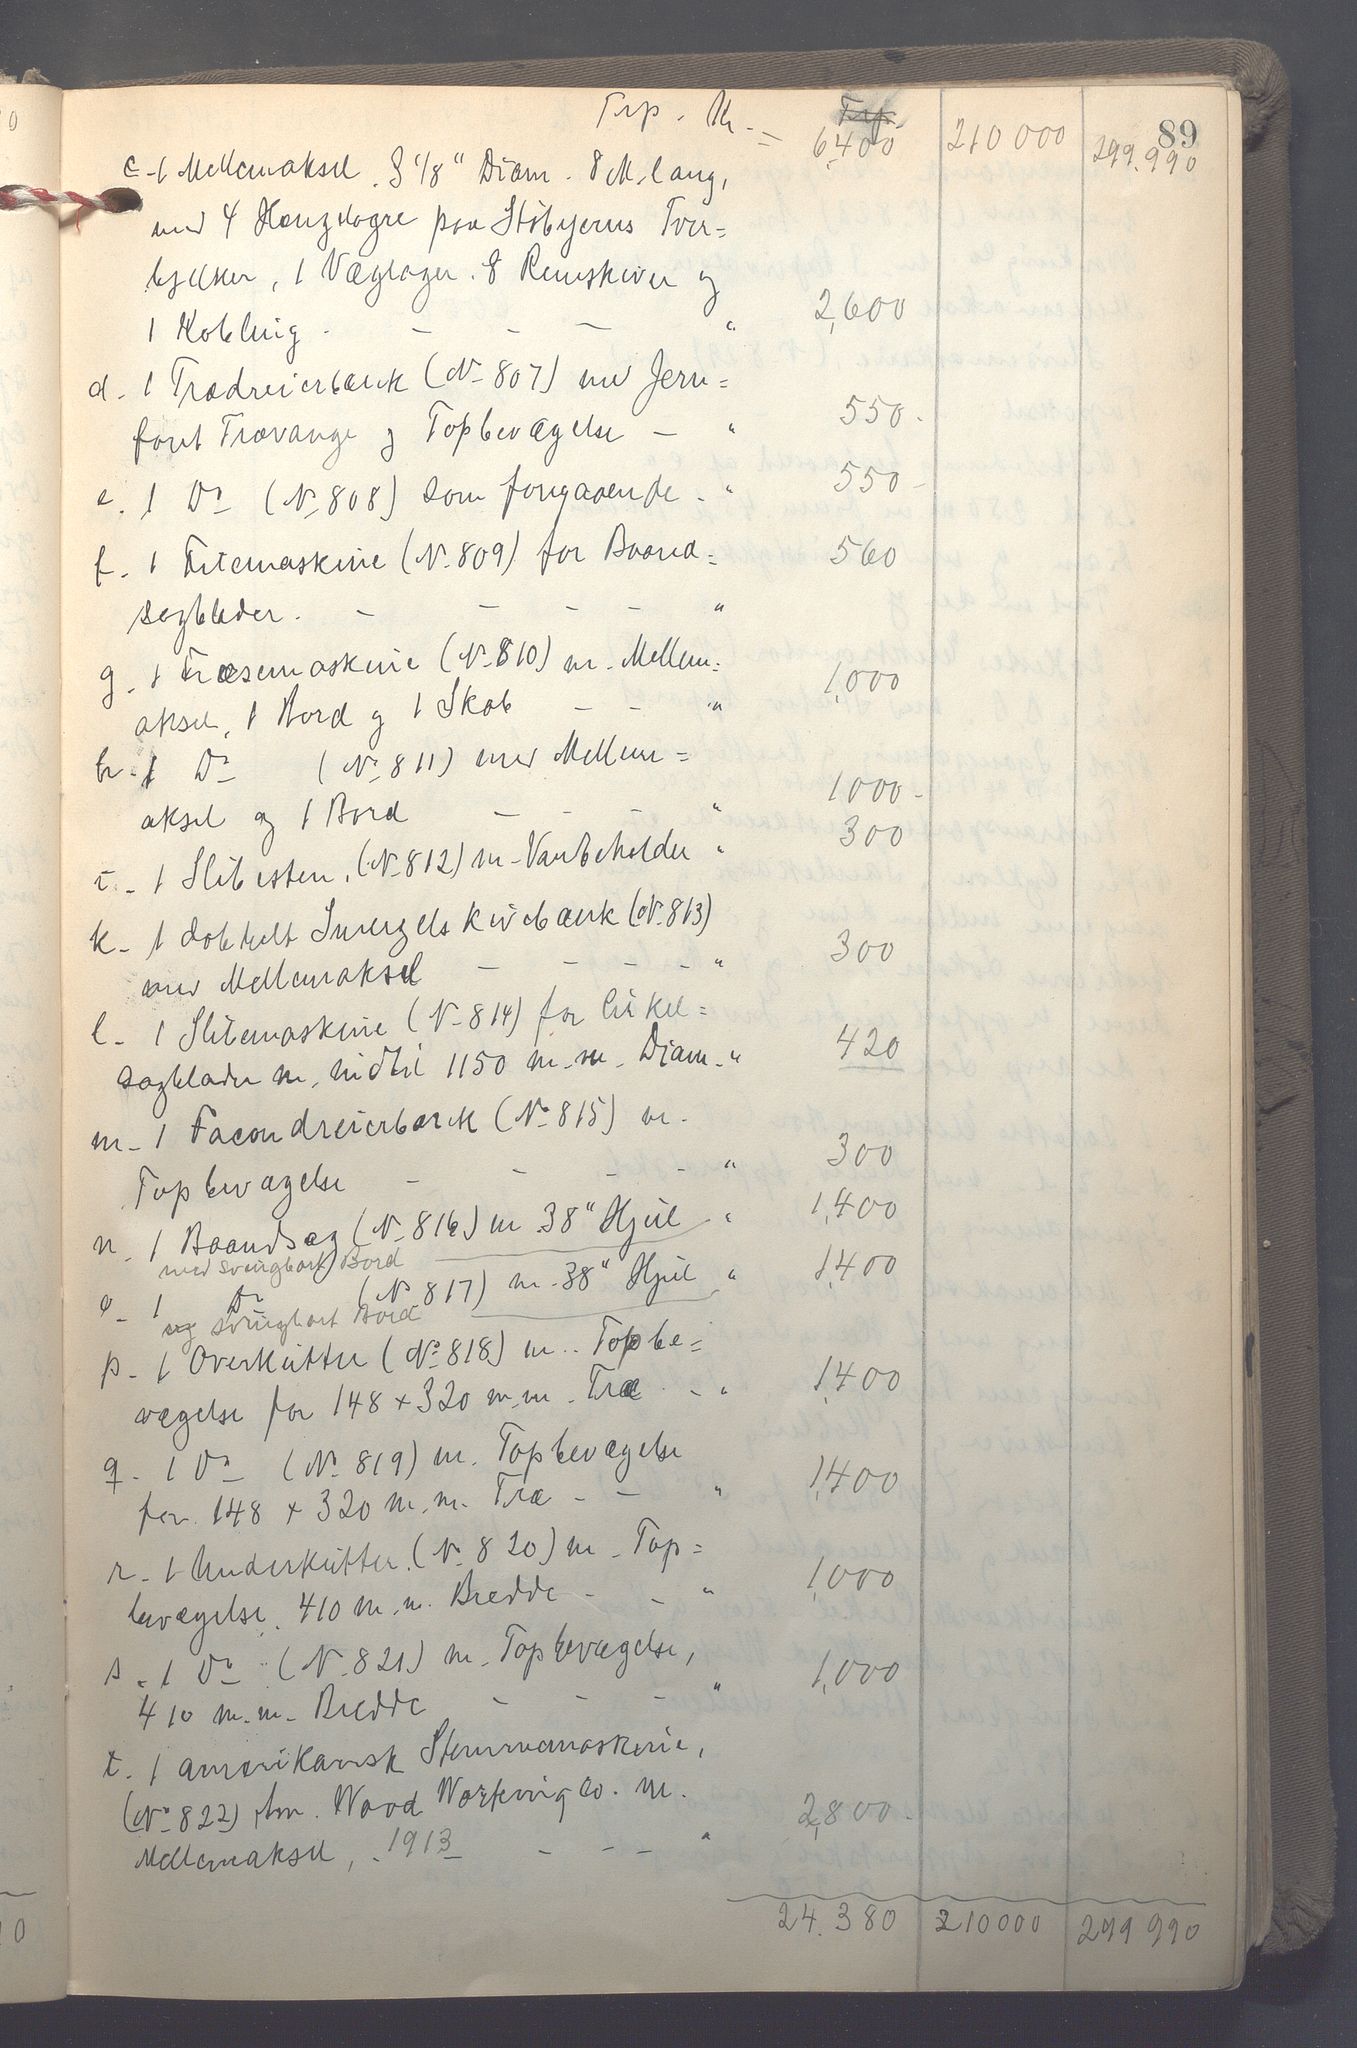 89
Trp. Kr. = 6,400 210 000 299.990
c - 1 Mellemaksel. 3 1/8" Diam. 8 M. lang,
med 4 Hængelagre paa Støbejerns Tver=
bjelker, 1 Væglager. 8 Remskiver og
1 Kobling. - - - " 2,600
d. 1 Trædreierbænk (No 807) med Jern=
foret Trævange og Topbevægelse - " 550.
e. 1 Do (No 808) som foregaaende - " 550-
f. 1 Filemaskine (No 809) for Baand= 560
sagblader. - - - - "
g. 1 Fræsemaskine (No 810) m. Mellem= 1,000
aksel, 1 Bord og 1 Skab - - "
h. 1 Do (No 811) med Mellem=
aksel og 1 Bord - - - " 1000-
i. 1 Slibesten, (No 812) m. Vandbeholder " 300
k. 1 dobbelt Smergelskivebænk (No 813)
med Mellemaksel - - - - " 300
l. 1 Slibemaskine (No 814) for Cirkel=
sagblader m. indtil 1150 m.m. Diam. " 420
m. 1 Facondreierbænk (No 815) m.
Topbevægelse - - - - " 300
n. 1 Baandsag (No 816) m. 38" Hjul " 1,400
med svingbart Bord
o. 1 Do (No 817) m. 38" Hjul " 1,400
og svingbart Bord
p. 1 Overkutter (No 818) m. Topbe=
vægelse for 148 x 320 m.m. Træ - " 1,400
q. 1 Do (No 819) m. Topbevægelse
for 148 x 320 m.m. Træ - - " 1,400
r. 1 Underkutter. (No 820) m. Top=
bevægelse. 410 m.m. Bredde - - " 1,000
s. 1 Do (No 821) m. Topbevægelse,
410 m.m. Bredde - - - " 1,000
t. 1 amerikansk Stemmemaskine,
(No 822) Am. Wood Working Co. m. 2,800.
Mellemaksel, 1913 - - - "
24.380 210000 299 990